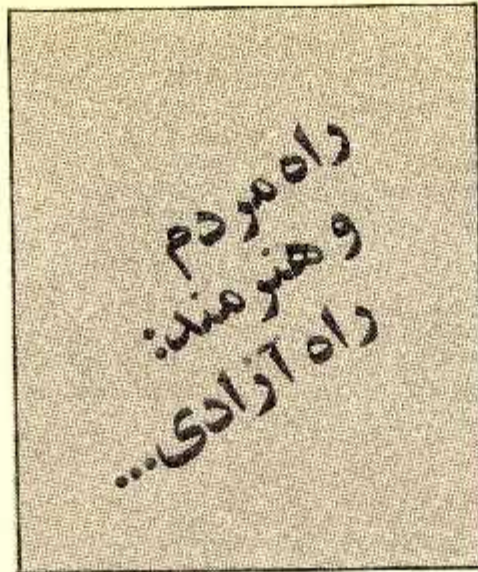 راه مردم
و هنرمند:
راه آزادی...